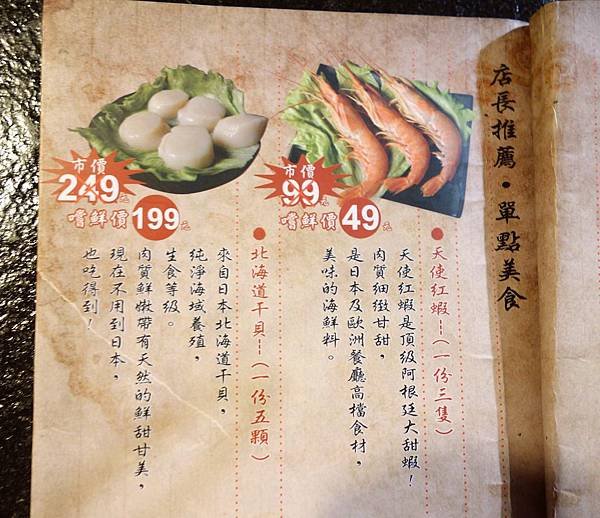 店長推薦・單點美食
市價
99元
嚐鮮價49元
●天使紅蝦--(一份三隻)
天使紅蝦是頂級阿根廷大甜蝦！
肉質細緻甘甜，
是日本及歐洲餐廳高檔食材，
美味的海鮮料。
市價
249元
嚐鮮價199元
●北海道干貝--(一份五顆)
來自日本北海道干貝，
純淨海域養殖，
生食等級。
肉質鮮嫩帶有天然的鮮甜甘美，
現在不用到日本，
也吃得到！